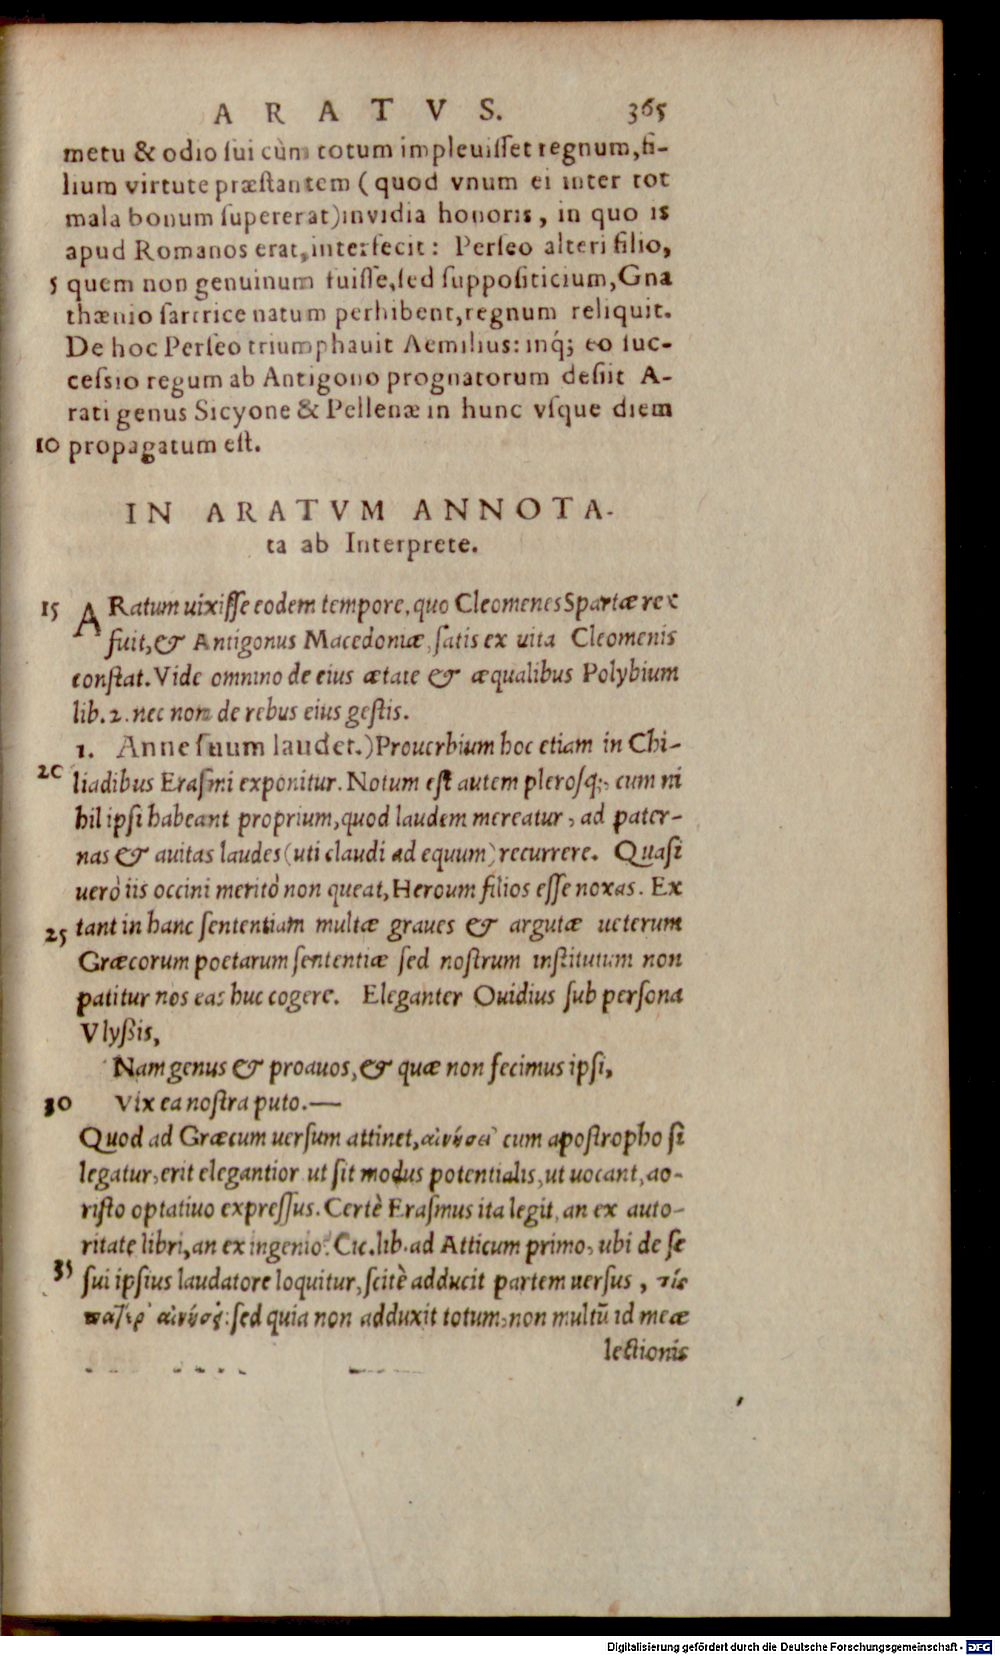 ARATVS. 365
metu & odio sui cùm totum impleuisset regnum, fi-
lium virtute præstantem (quod vnum ei inter tot
mala bonum supererat) invidia honoris, in quo is
apud Romanos erat, interfecit: Perseo alteri filio,
5 quem non genuinum fuisse, sed supposititium, Gna
thænio sartrice natum perhibent, regnum reliquit.
De hoc Perseo triumphauit Aemilius: inq́; eo suc-
cessio regum ab Antigono prognatorum desiit A-
rati genus Sicyone & Pellenæ in hunc vsque diem
10 propagatum est.
IN ARATVM ANNOTA-
ta ab Interprete.
15 ARatum uixisse eodem tempore, quo Cleomenes Spartæ rex
fuit, & Antigonus Macedoniæ, satis ex uita Cleomenis
constat. Vide omnino de eius ætate & æqualibus Polybium
lib. 2. nec non de rebus eius gestis.
1. Anne suum laudet.) Prouerbium hoc etiam in Chi-
20 liadibus Erasmi exponitur. Notum est autem plerosq;, cum ni
hil ipsi habeant proprium, quod laudem mereatur, ad pater-
nas & auitas laudes (uti claudi ad equum) recurrere. Quasi
uerò iis occini meritò non queat, Heroum filios esse noxas. Ex
25 tant in hanc sententiam multæ graues & argutæ ueterum
Græcorum poetarum sententiæ sed nostrum institutum non
patitur nos eas huc cogere. Eleganter Ouidius sub persona
Vlyßis,
Nam genus & proauos, & quæ non fecimus ipsi,
30 Vix ea nostra puto.—
Quod ad Græcum uersum attinet, αἰνήσει’ cum apostropho si
legatur, erit elegantior ut sit modus potentialis, ut uocant, ao-
risto optatiuo expressus. Certè Erasmus ita legit, an ex auto-
ritate libri, an ex ingenio? Cic. lib. ad Atticum primo, ubi de se
35 sui ipsius laudatore loquitur, scitè adducit partem uersus, τίς
πατέρ’ αἰνήσει: sed quia non adduxit totum, non multũ id meæ
lectionis
Digitalisierung gefördert durch die Deutsche Forschungsgemeinschaft - DFG